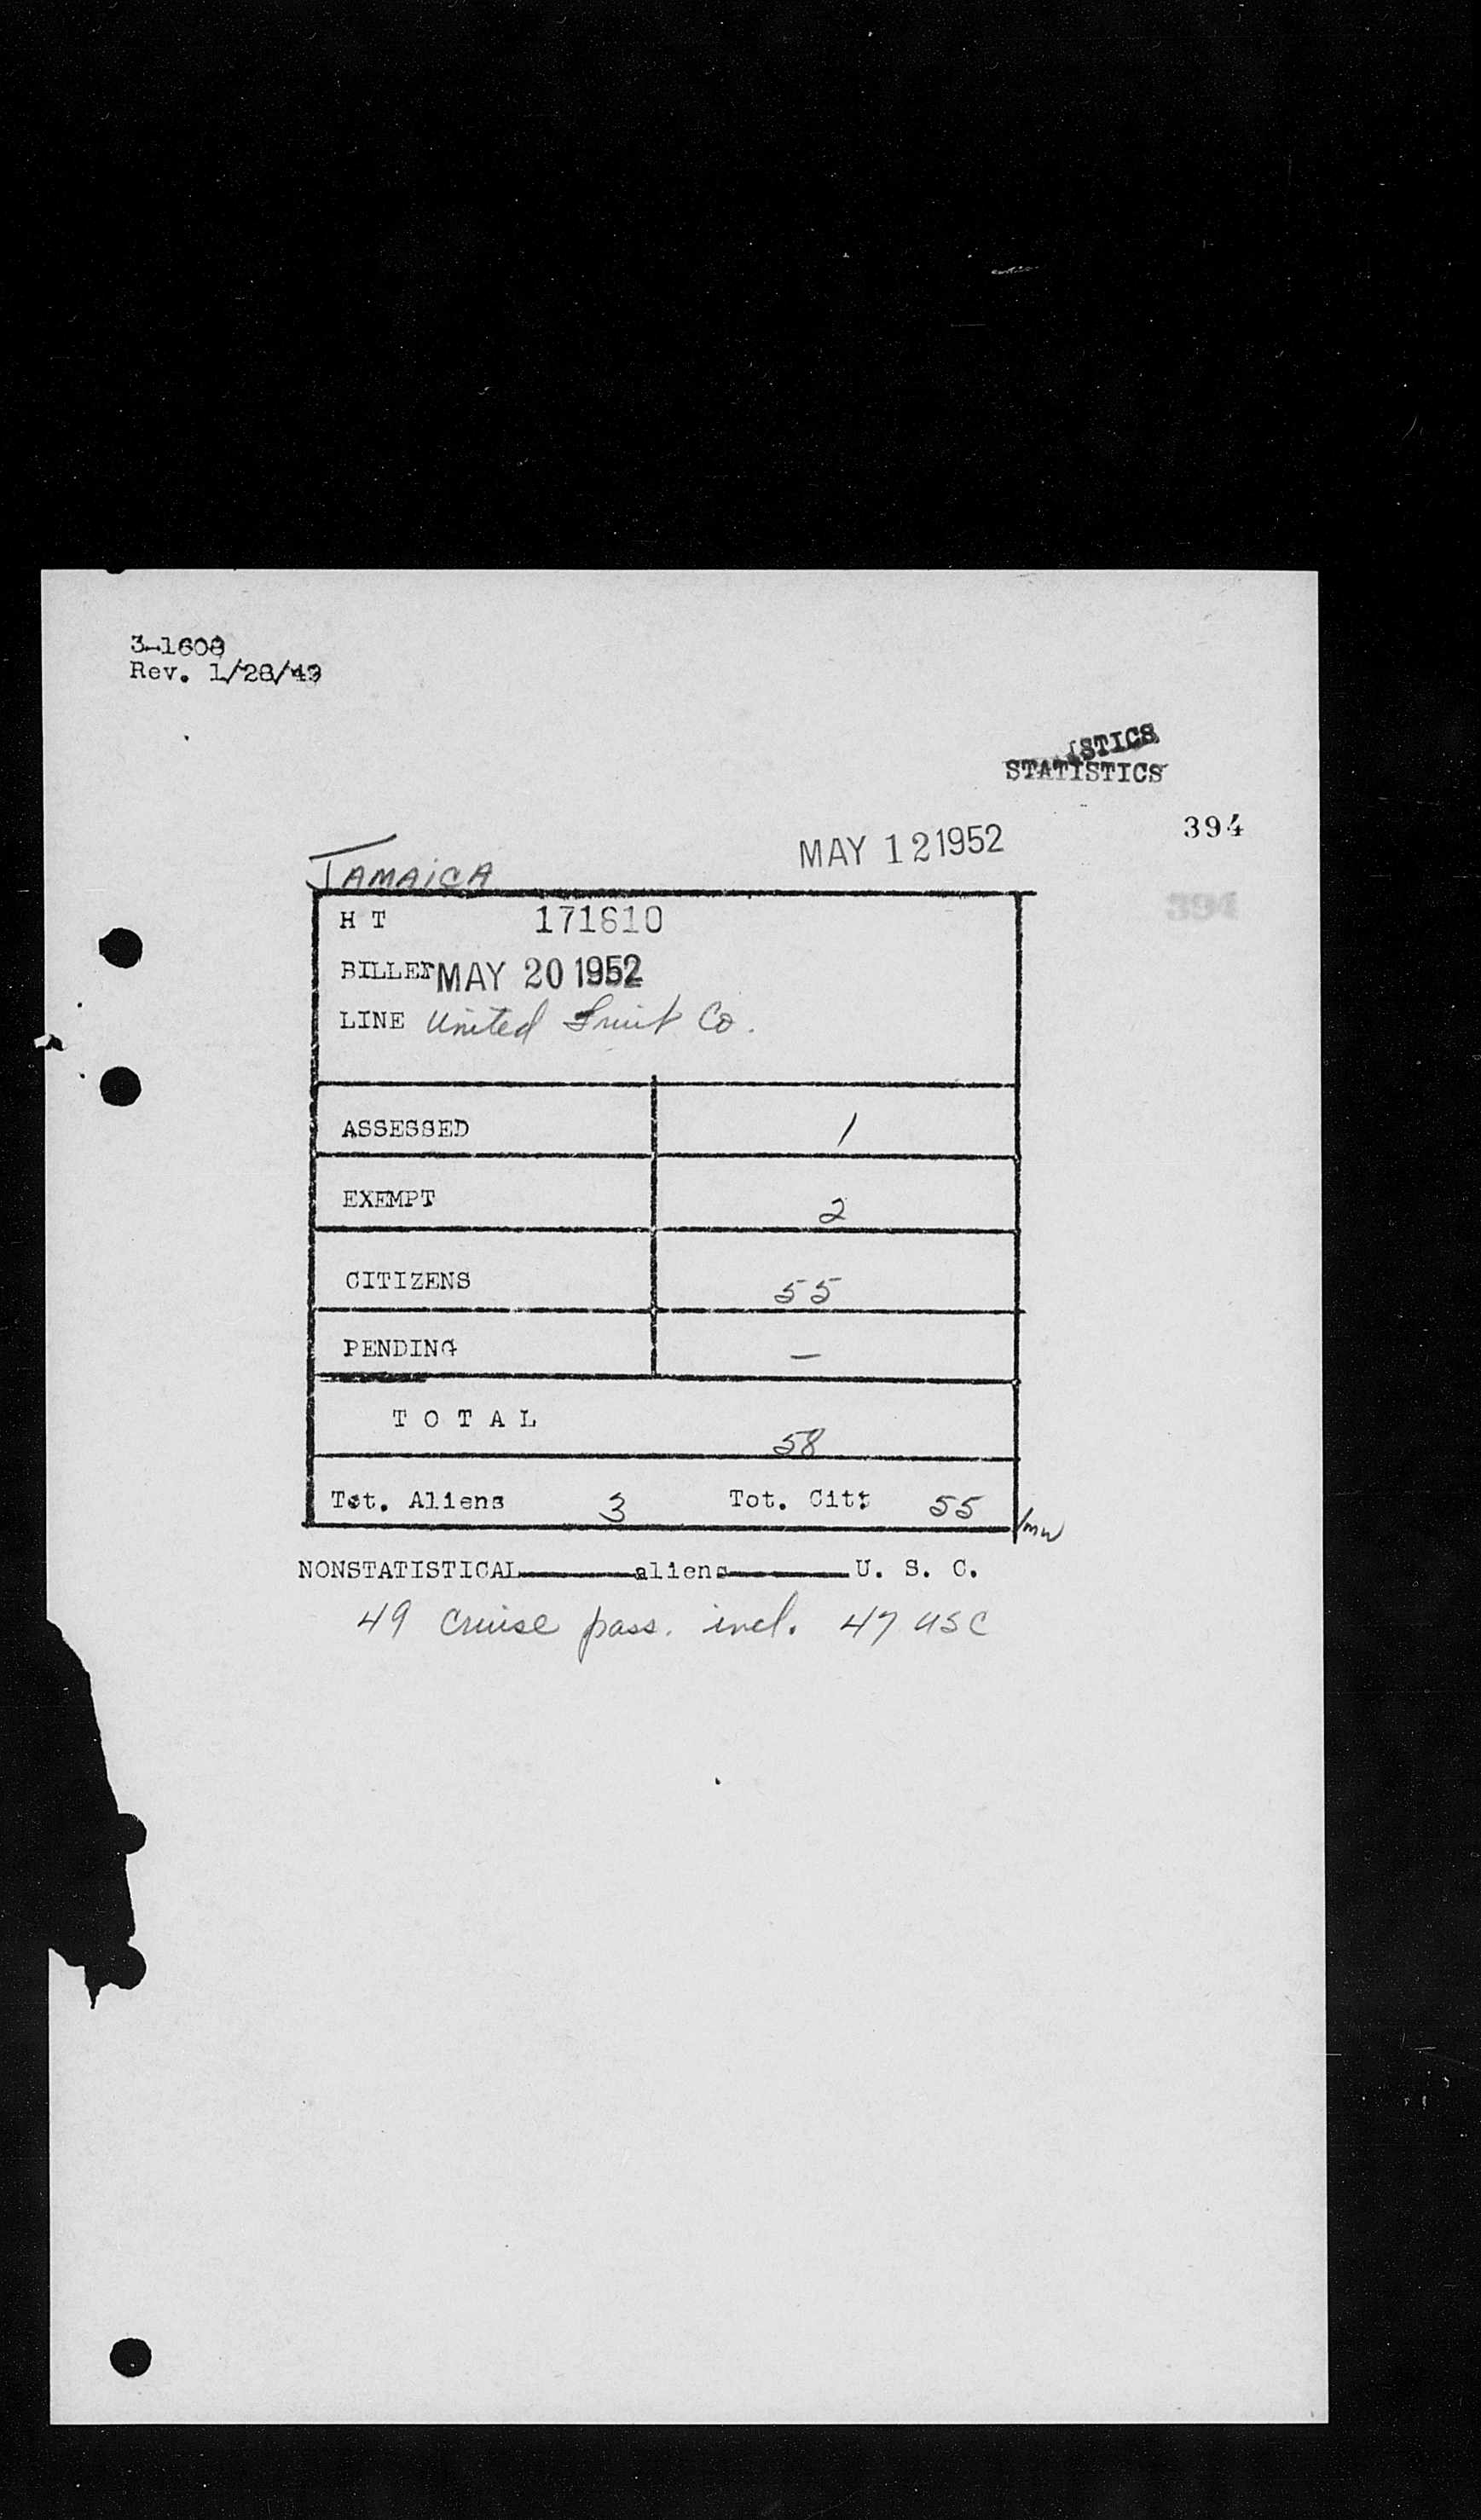 3-1608
Rev. 1/28/49
STICS
STATISTICS
394
MAY 12 1952
JAMAICA
394
H T 171610
BILLET MAY 20 1952
LINE United Fruit Co.
ASSESSED 1
EXEMPT 2
CITIZENS 55
PENDING —
T O T A L 58
Tot. Aliens 3 Tot. Cit: 55 /mw
NONSTATISTICAL aliens U. S. C.
49 cruise pass. incl. 47 USC